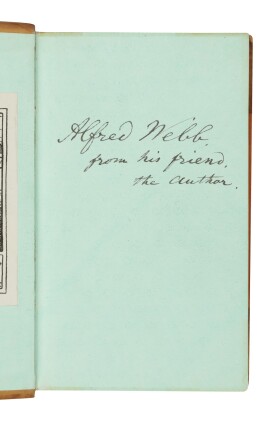 Alfred Webb
from his friend.
the author.